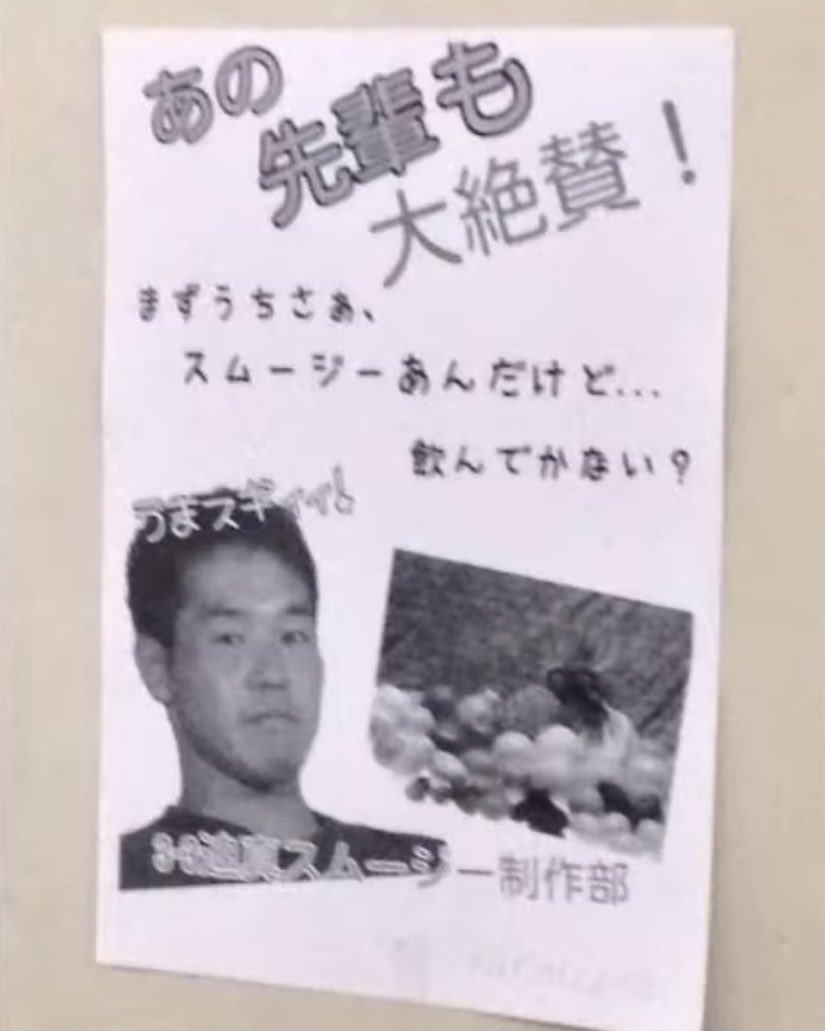 あの
先輩も
大絶賛！
まずうちさぁ、
スムージーあんだけど…
飲んでかない？
うまスギィィ!
3-3迫真スムージー制作部